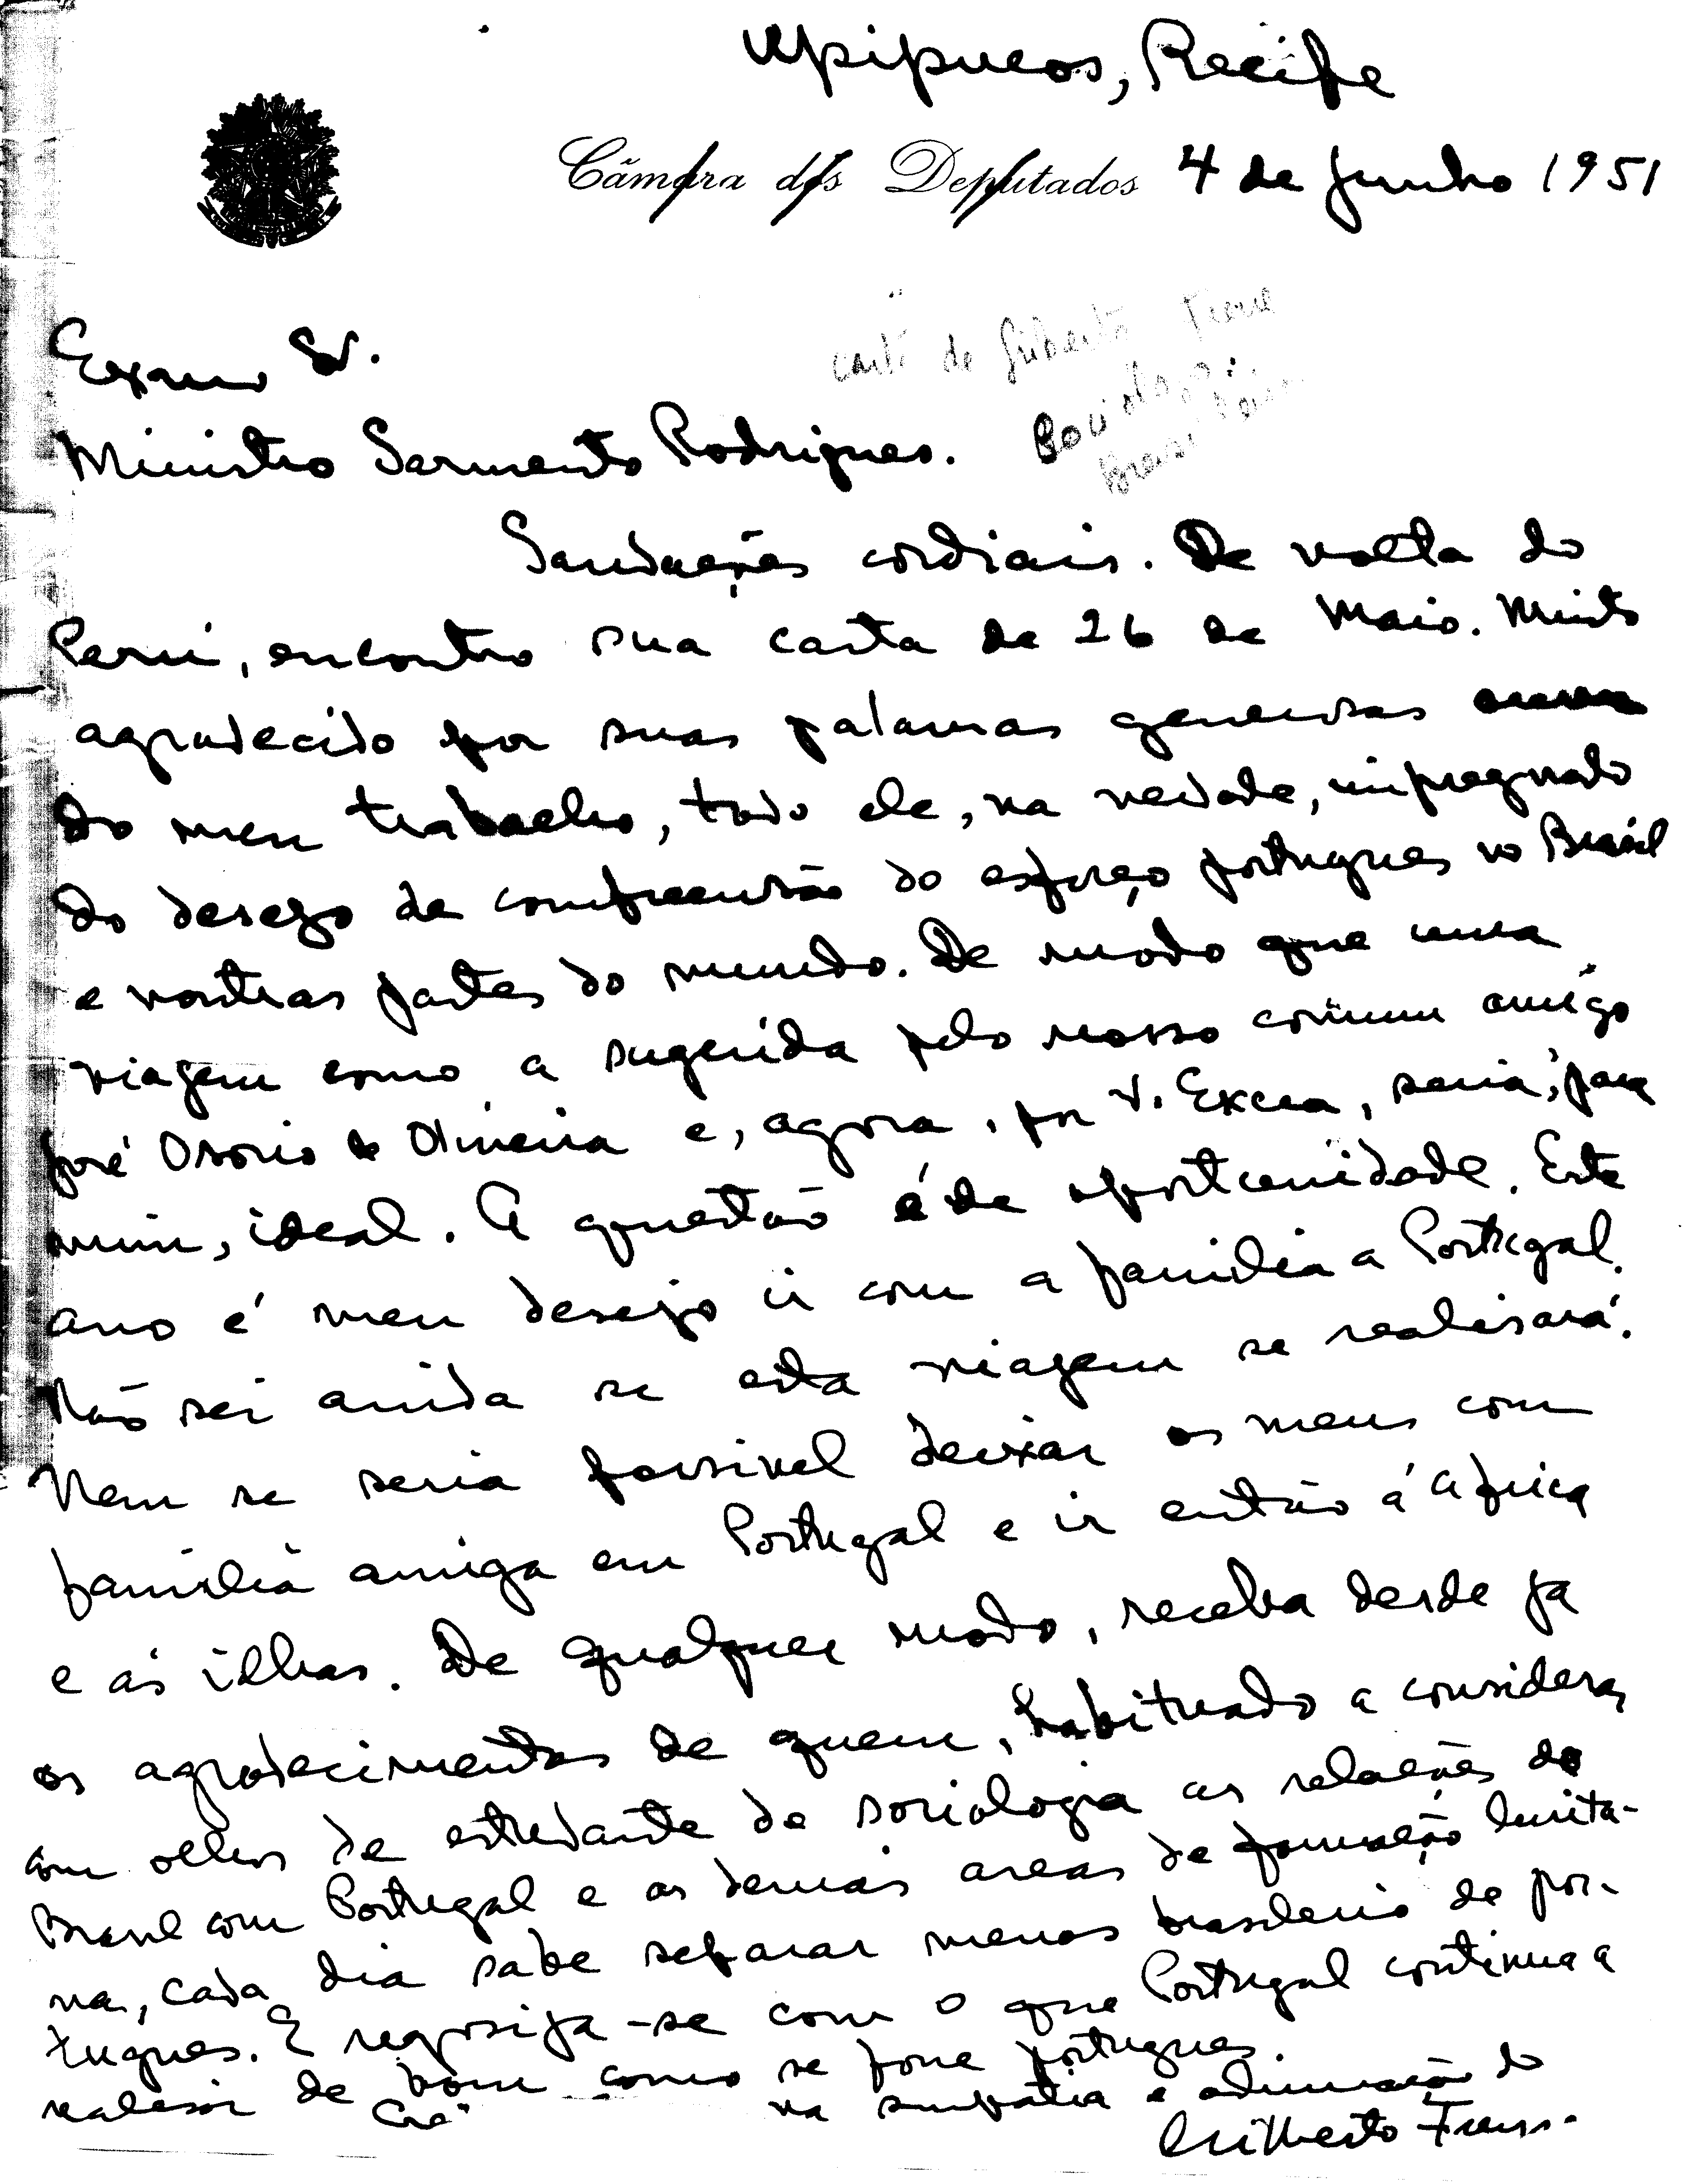 Apipucos, Recife
Câmara dos Deputados 4 de Junho 1951
carta de Gilberto Freire
Exmo Sr.
Ministro Sarmento Rodrigues.
Saudações cordiais. De volta do
Perú, encontro sua carta de 26 de Maio. Muito
agradecido por suas palavras generosas
do meu trabalho, todo ele, na verdade, impregnado
do desejo de compreensão do esforço portugues no Brasil
e noutras partes do mundo. De modo que uma
viagem como a sugerida pelo nosso comum amigo
José Osorio de Oliveira e, agora, por V. Excia, seria, para
mim, ideal. A questão é de oportunidade. Este
ano é meu desejo ir com a familia a Portugal.
Não sei ainda se esta viagem se realisará.
Nem se seria possivel deixar os meus com
familia amiga em Portugal e ir então á Africa
e ás ilhas. De qualquer modo, receba desde já
os agradecimentos de quem, habituado a considerar
com olhos de estudante de sociologia as relações do
Brasil com Portugal e as demais areas de formação lusita-
na, cada dia sabe separar menos brasileiro de por-
tugues. E regosija-se com o que Portugal continua a
realisar de bom como se fosse portugues.
Cro. na simpatia e admiração do
Gilberto Freyre.